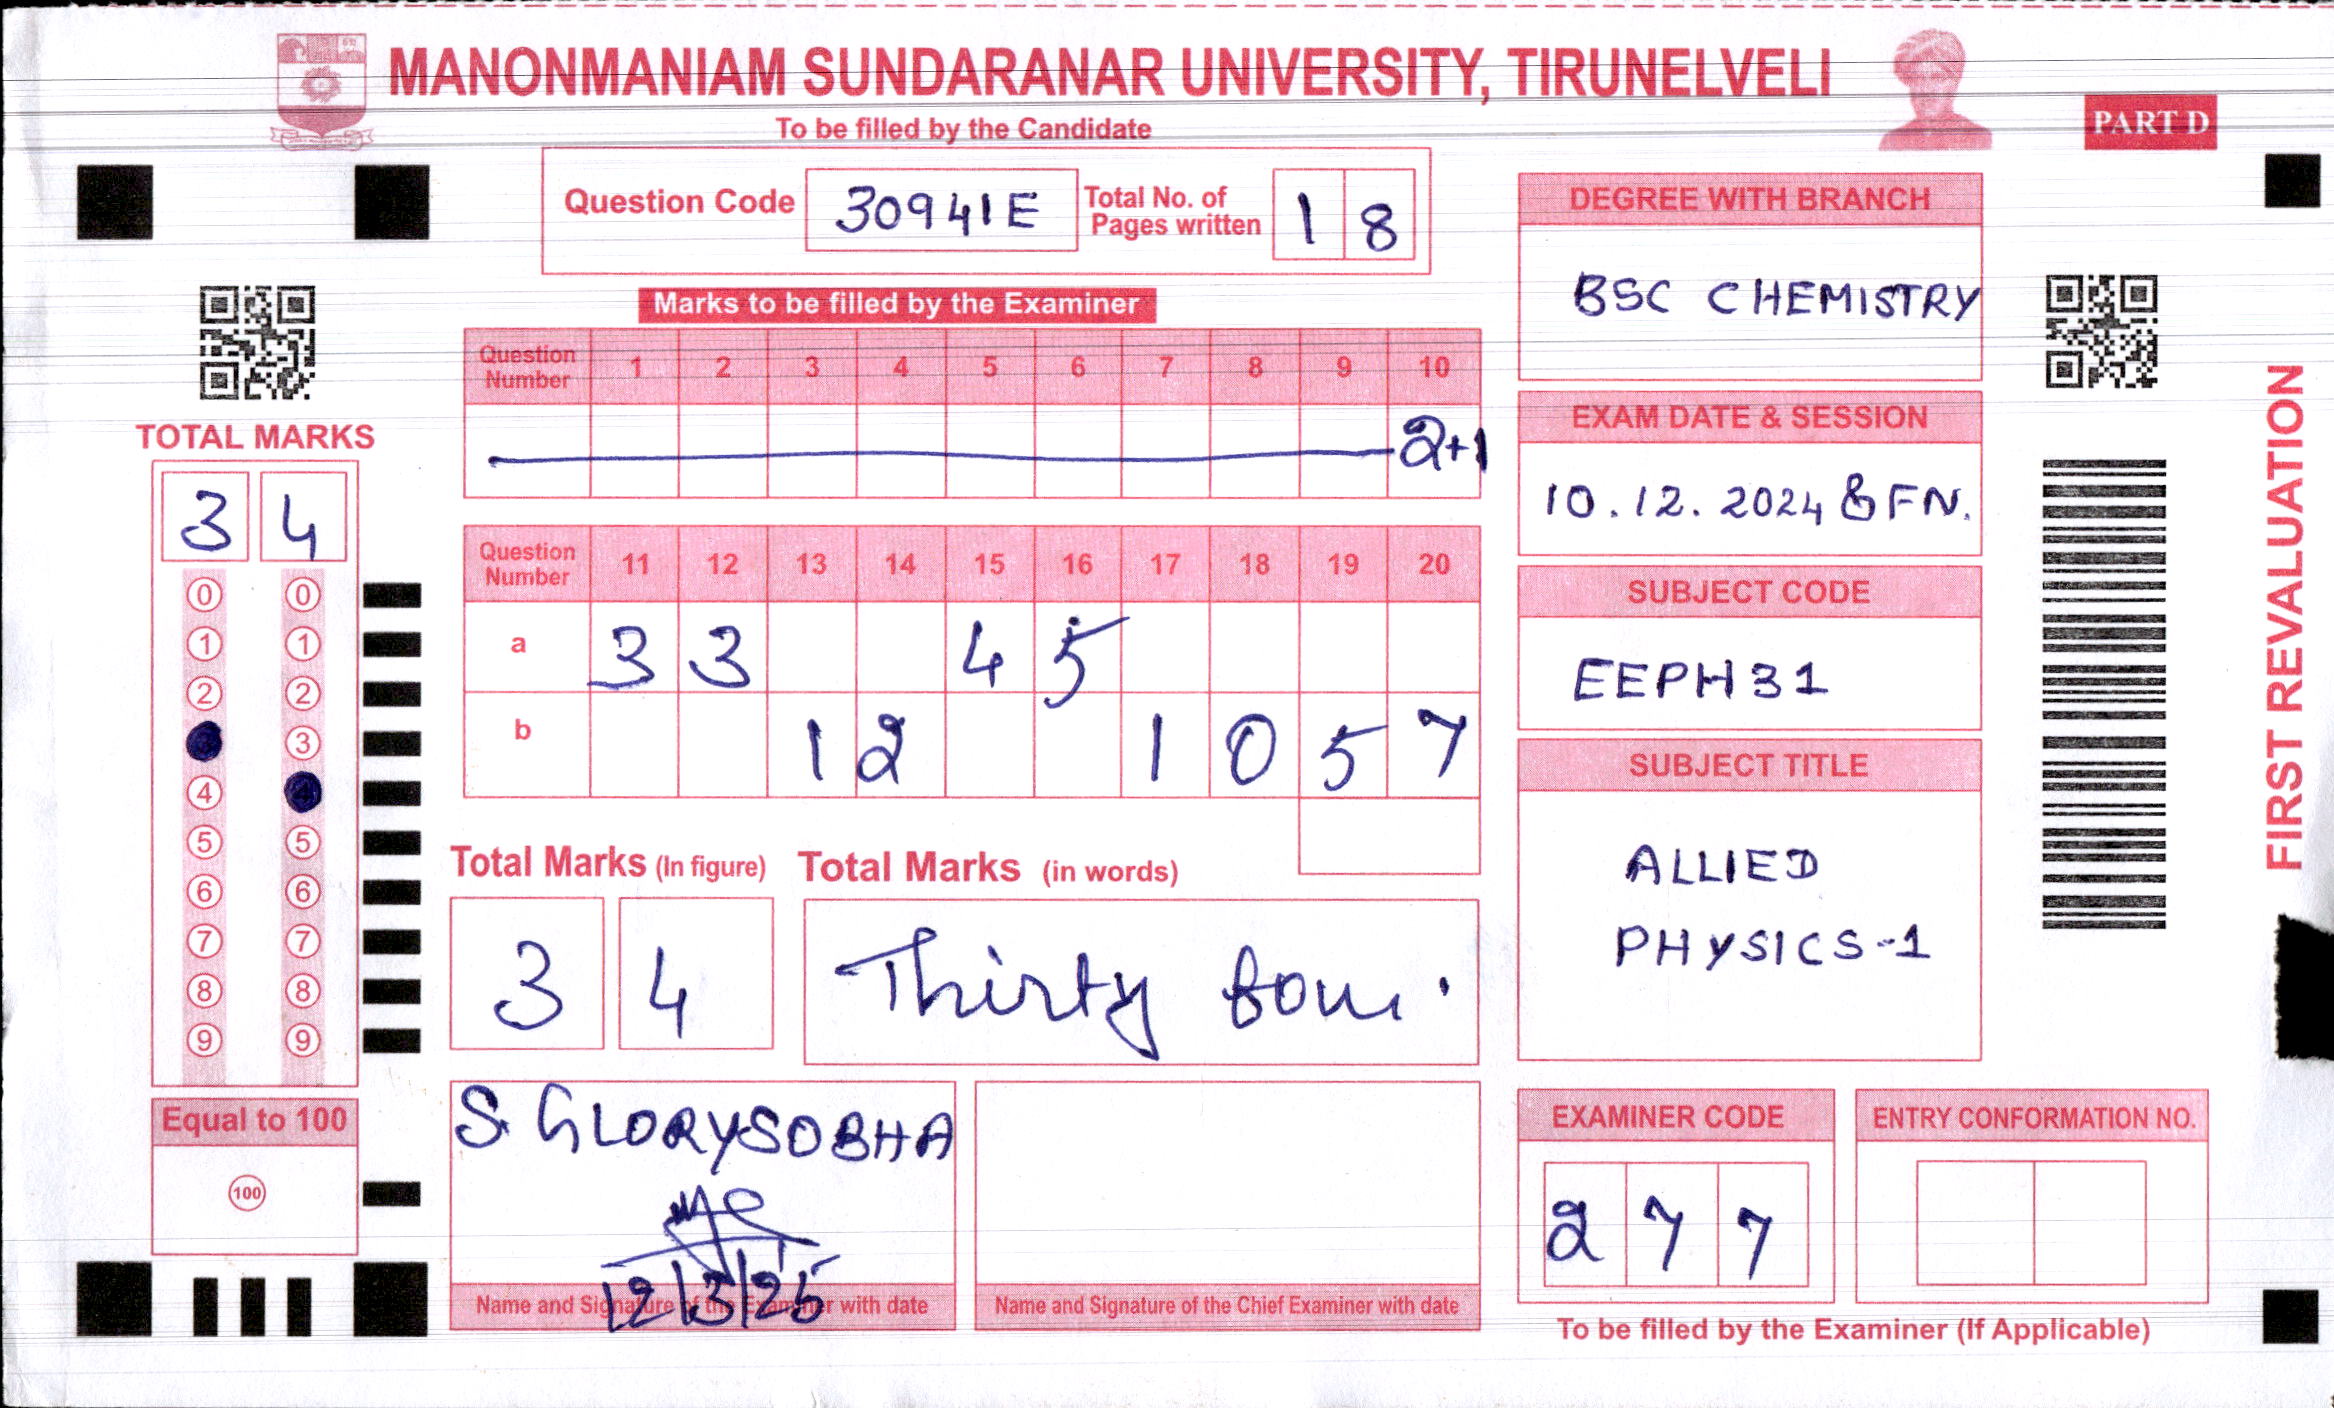 MANONMANIAM SUNDARANAR UNIVERSITY, TIRUNELVELI
To be filled by the Candidate
PART D
Question Code 30941E Total No. of Pages written 1 8
Marks to be filled by the Examiner
Question Number 1 2 3 4 5 6 7 8 9 10
2+1
Question Number 11 12 13 14 15 16 17 18 19 20
a 3 3 4 5
b 1 2 1 0 5 7
Total Marks (In figure) Total Marks (in words)
3 4 Thirty four.
S. GLORYSOBHA
12/3/25
Name and Signature of the Examiner with date
Name and Signature of the Chief Examiner with date
TOTAL MARKS
3 4
0 0
1 1
2 2
3
4 4
5 5
6 6
7 7
8 8
9 9
Equal to 100
100
DEGREE WITH BRANCH
BSC CHEMISTRY
EXAM DATE & SESSION
10.12.2024 & FN.
SUBJECT CODE
EEPH31
SUBJECT TITLE
ALLIED
PHYSICS-1
EXAMINER CODE
2 7 7
ENTRY CONFORMATION NO.
To be filled by the Examiner (If Applicable)
FIRST REVALUATION